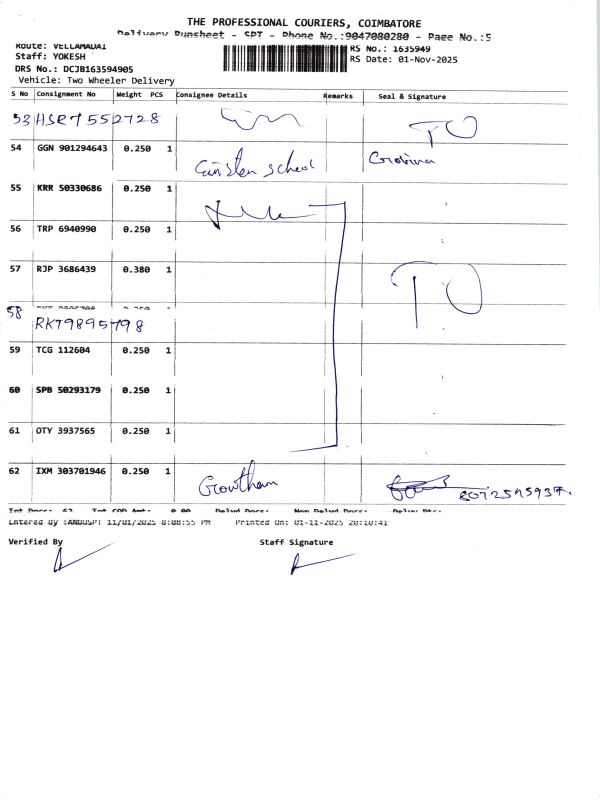 THE PROFESSIONAL COURIERS, COIMBATORE
Delivery Runsheet - SPT - Phone No.:9047080280 - Page No.:5
Route: VELLAMADAI
RS No.: 1635949
Staff: YOKESH
RS Date: 01-Nov-2025
DRS No.: DCJB163594905
Vehicle: Two Wheeler Delivery
S No Consignment No Weight PCS Consignee Details Remarks Seal & Signature
53 HSR7552728
54 GGN 901294643 0.250 1
55 KRR 50330686 0.250 1
56 TRP 6940990 0.250 1
57 RJP 3686439 0.380 1
58 RKT9895798
59 TCG 112604 0.250 1
60 SPB 50293179 0.250 1
61 OTY 3937565 0.250 1
62 IXM 303701946 0.250 1 Growtham
Tot Docs: 62 Tot COD Amt: 0.00 Delvd Docs: Non Delvd Docs:
11/01/2025 8:08:55 PM Printed On: 01-11-2025 20:10:41
Verified By Staff Signature